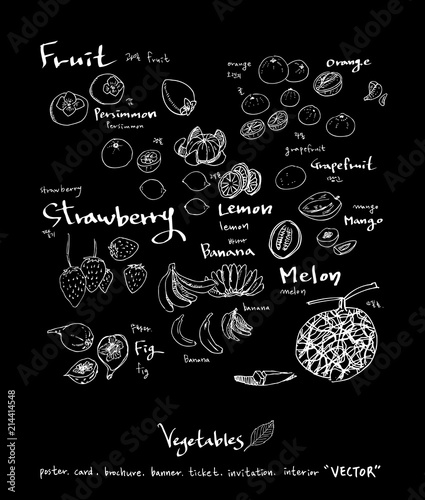 Fruit
과일 fruit
orange
오렌지
Orange
감
Persimmon
Persimmon
귤
자몽
grapefruit
Grapefruit
레몬
strawberry
Strawberry
딸기
Lemon
lemon
바나나
Banana
망고
mango
Mango
Melon
melon
banana
Banana
Fig
fig
Vegetables
poster. card. brochure. banner. ticket. invitation. interior "VECTOR"
Adobe Stock | #214414548